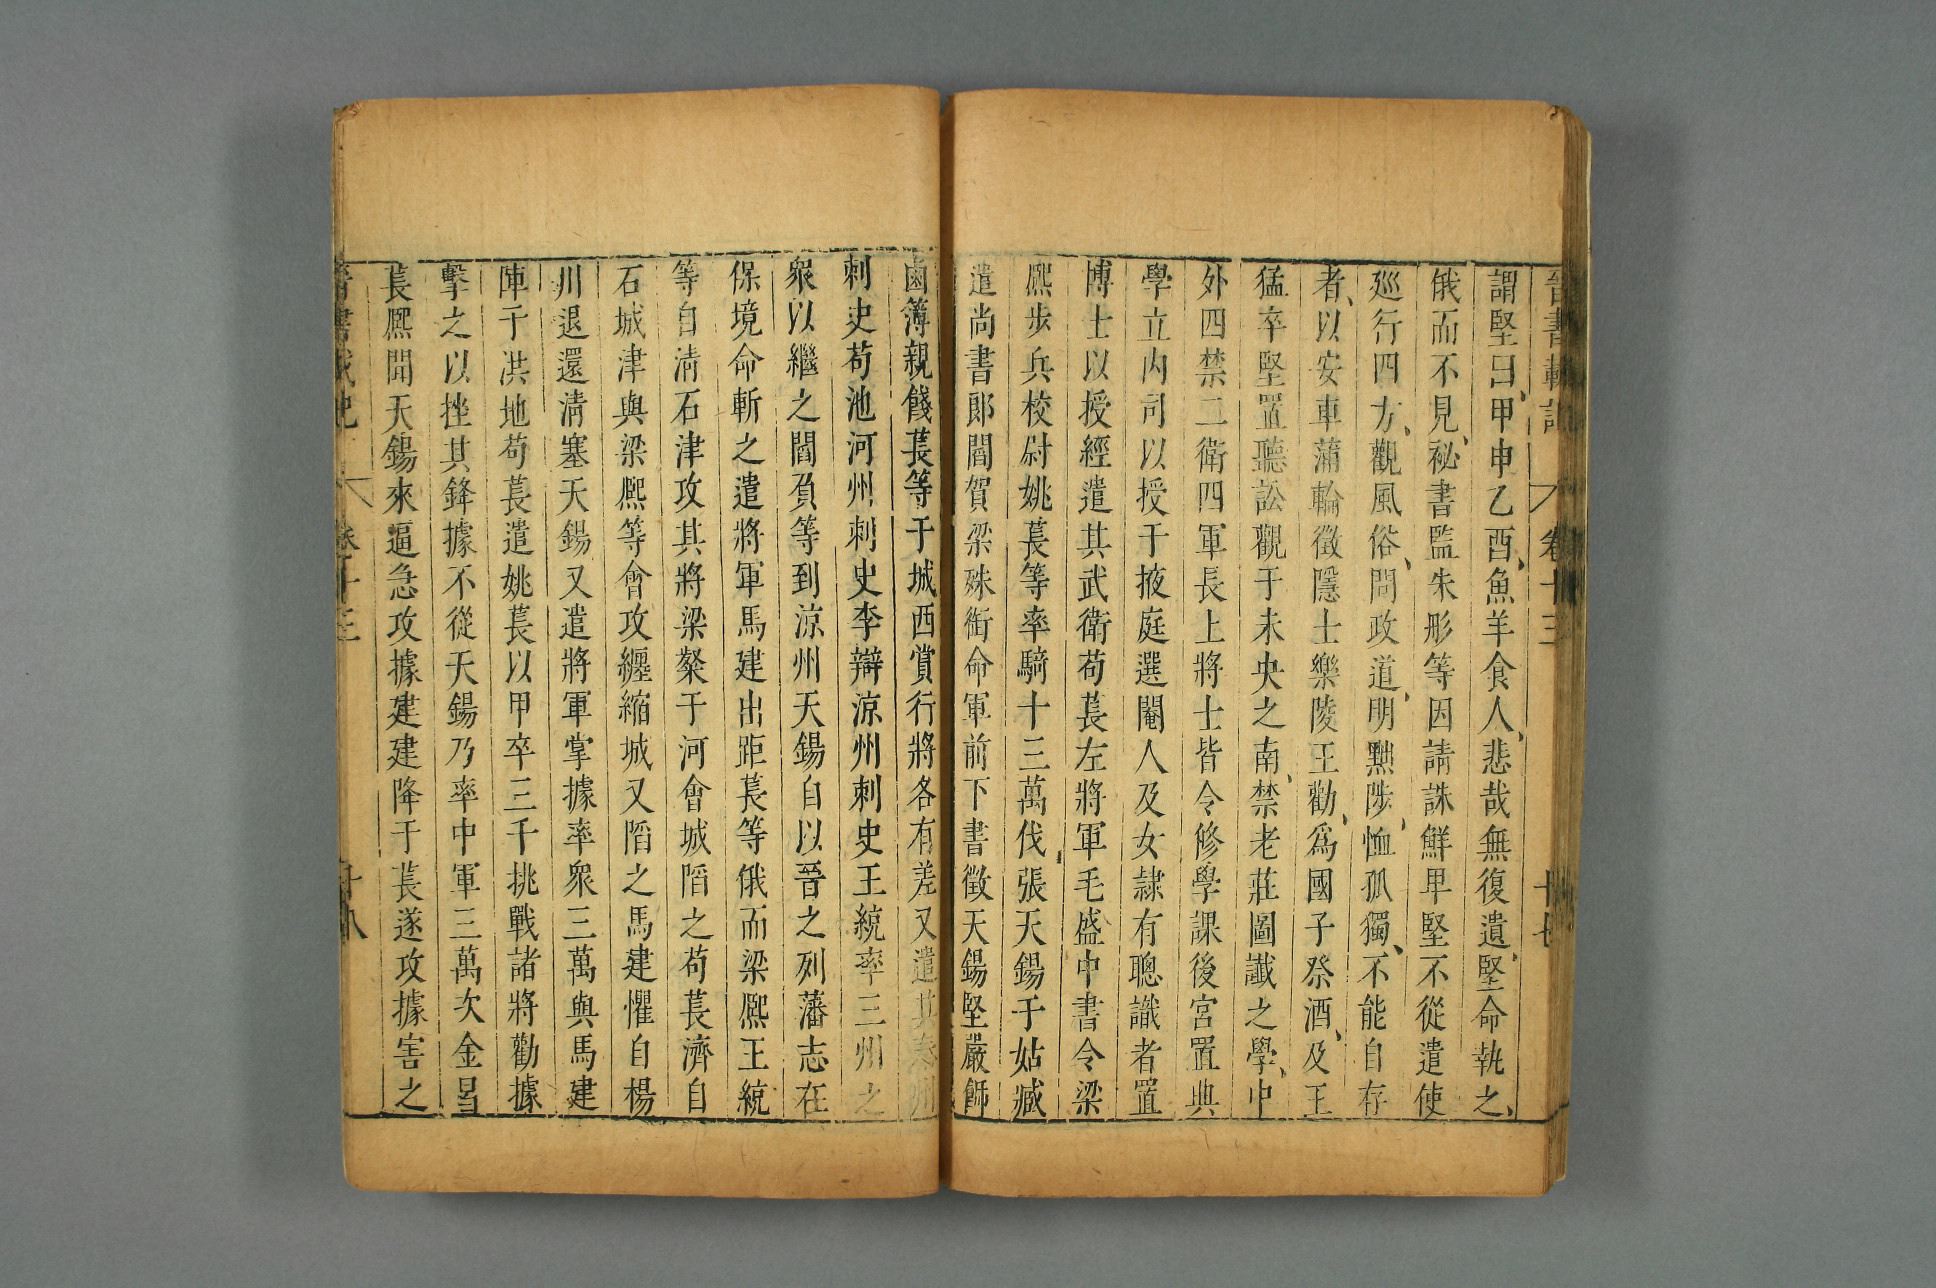 晉書載記 卷十三 十七
謂堅曰、甲申乙酉、魚羊食人、悲哉無復遺、堅命執之、
俄而不見、秘書監朱彤等因請誅鮮卑堅不從遣使
巡行四方、觀風俗、問政道、明黜陟、恤孤獨、不能自存
者、以安車蒲輪徵隱士樂陵王勸、爲國子祭酒、及王
猛卒堅置聽訟觀于未央之南、禁老莊圖讖之學、中
外四禁二衛四軍長上將士皆令修學課後宮置典
學立內司以授于掖庭選閹人及女隸有聰識者置
博士以授經遣其武衛苟萇左將軍毛盛中書令梁
熙步兵校尉姚萇等率騎十三萬伐張天錫于姑臧
遣尚書郎閻負梁殊銜命軍前下書徵天錫堅嚴飾
鹵簿親餞萇等于城西賞行將各有差又遣其秦州
刺史苟池河州刺史李辯涼州刺史王統率三州之
衆以繼之閻負等到涼州天錫自以晉之列藩志在
保境命斬之遣將軍馬建出距萇等俄而梁熙王統
等自清石津攻其將梁粲于河會城陷之苟萇濟自
石城津與梁熙等會攻纏縮城又陷之馬建懼自楊
川退還清塞天錫又遣將軍掌據率衆三萬與馬建
陣于洪池苟萇遣姚萇以甲卒三千挑戰諸將勸據
擊之以挫其鋒據不從天錫乃率中軍三萬次金昌
萇熙聞天錫來逼急攻據建建降于萇遂攻據害之
晉書載記 卷十三 十八